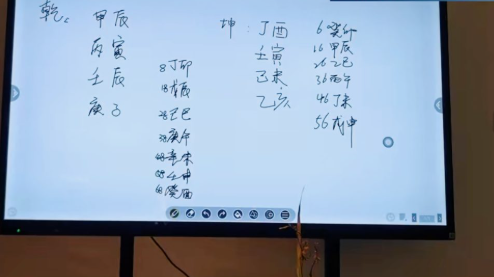 乾: 甲辰
丙寅
壬辰
庚子
8丁卯
18戊辰
28己巳
38庚午
48辛未
58壬申
68癸酉
坤: 丁酉
壬寅
己未
乙亥
6癸卯
16甲辰
26乙巳
36丙午
46丁未
56戊申